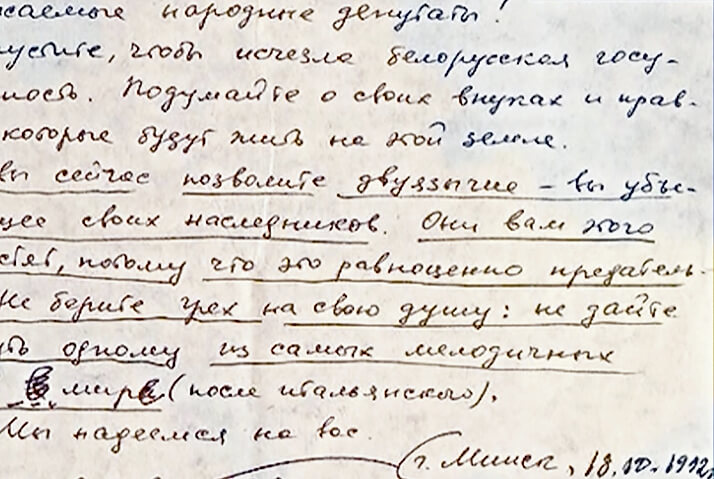 саемые народные депутаты!
устите, чтобы исчезла белорусская госу-
ность. Подумайте о своих внуках и прав-
которые будут жить на этой земле.
вы сейчас позволите двуязычие – вы убье-
щее своих наследников. Они вам этого
стят, потому что это равноценно предатель-
Не берите грех на свою душу: не дайте
ть одному из самых мелодичных
мира (после итальянского).
Мы надеемся на вас.
г. Минск, 18.10.1992